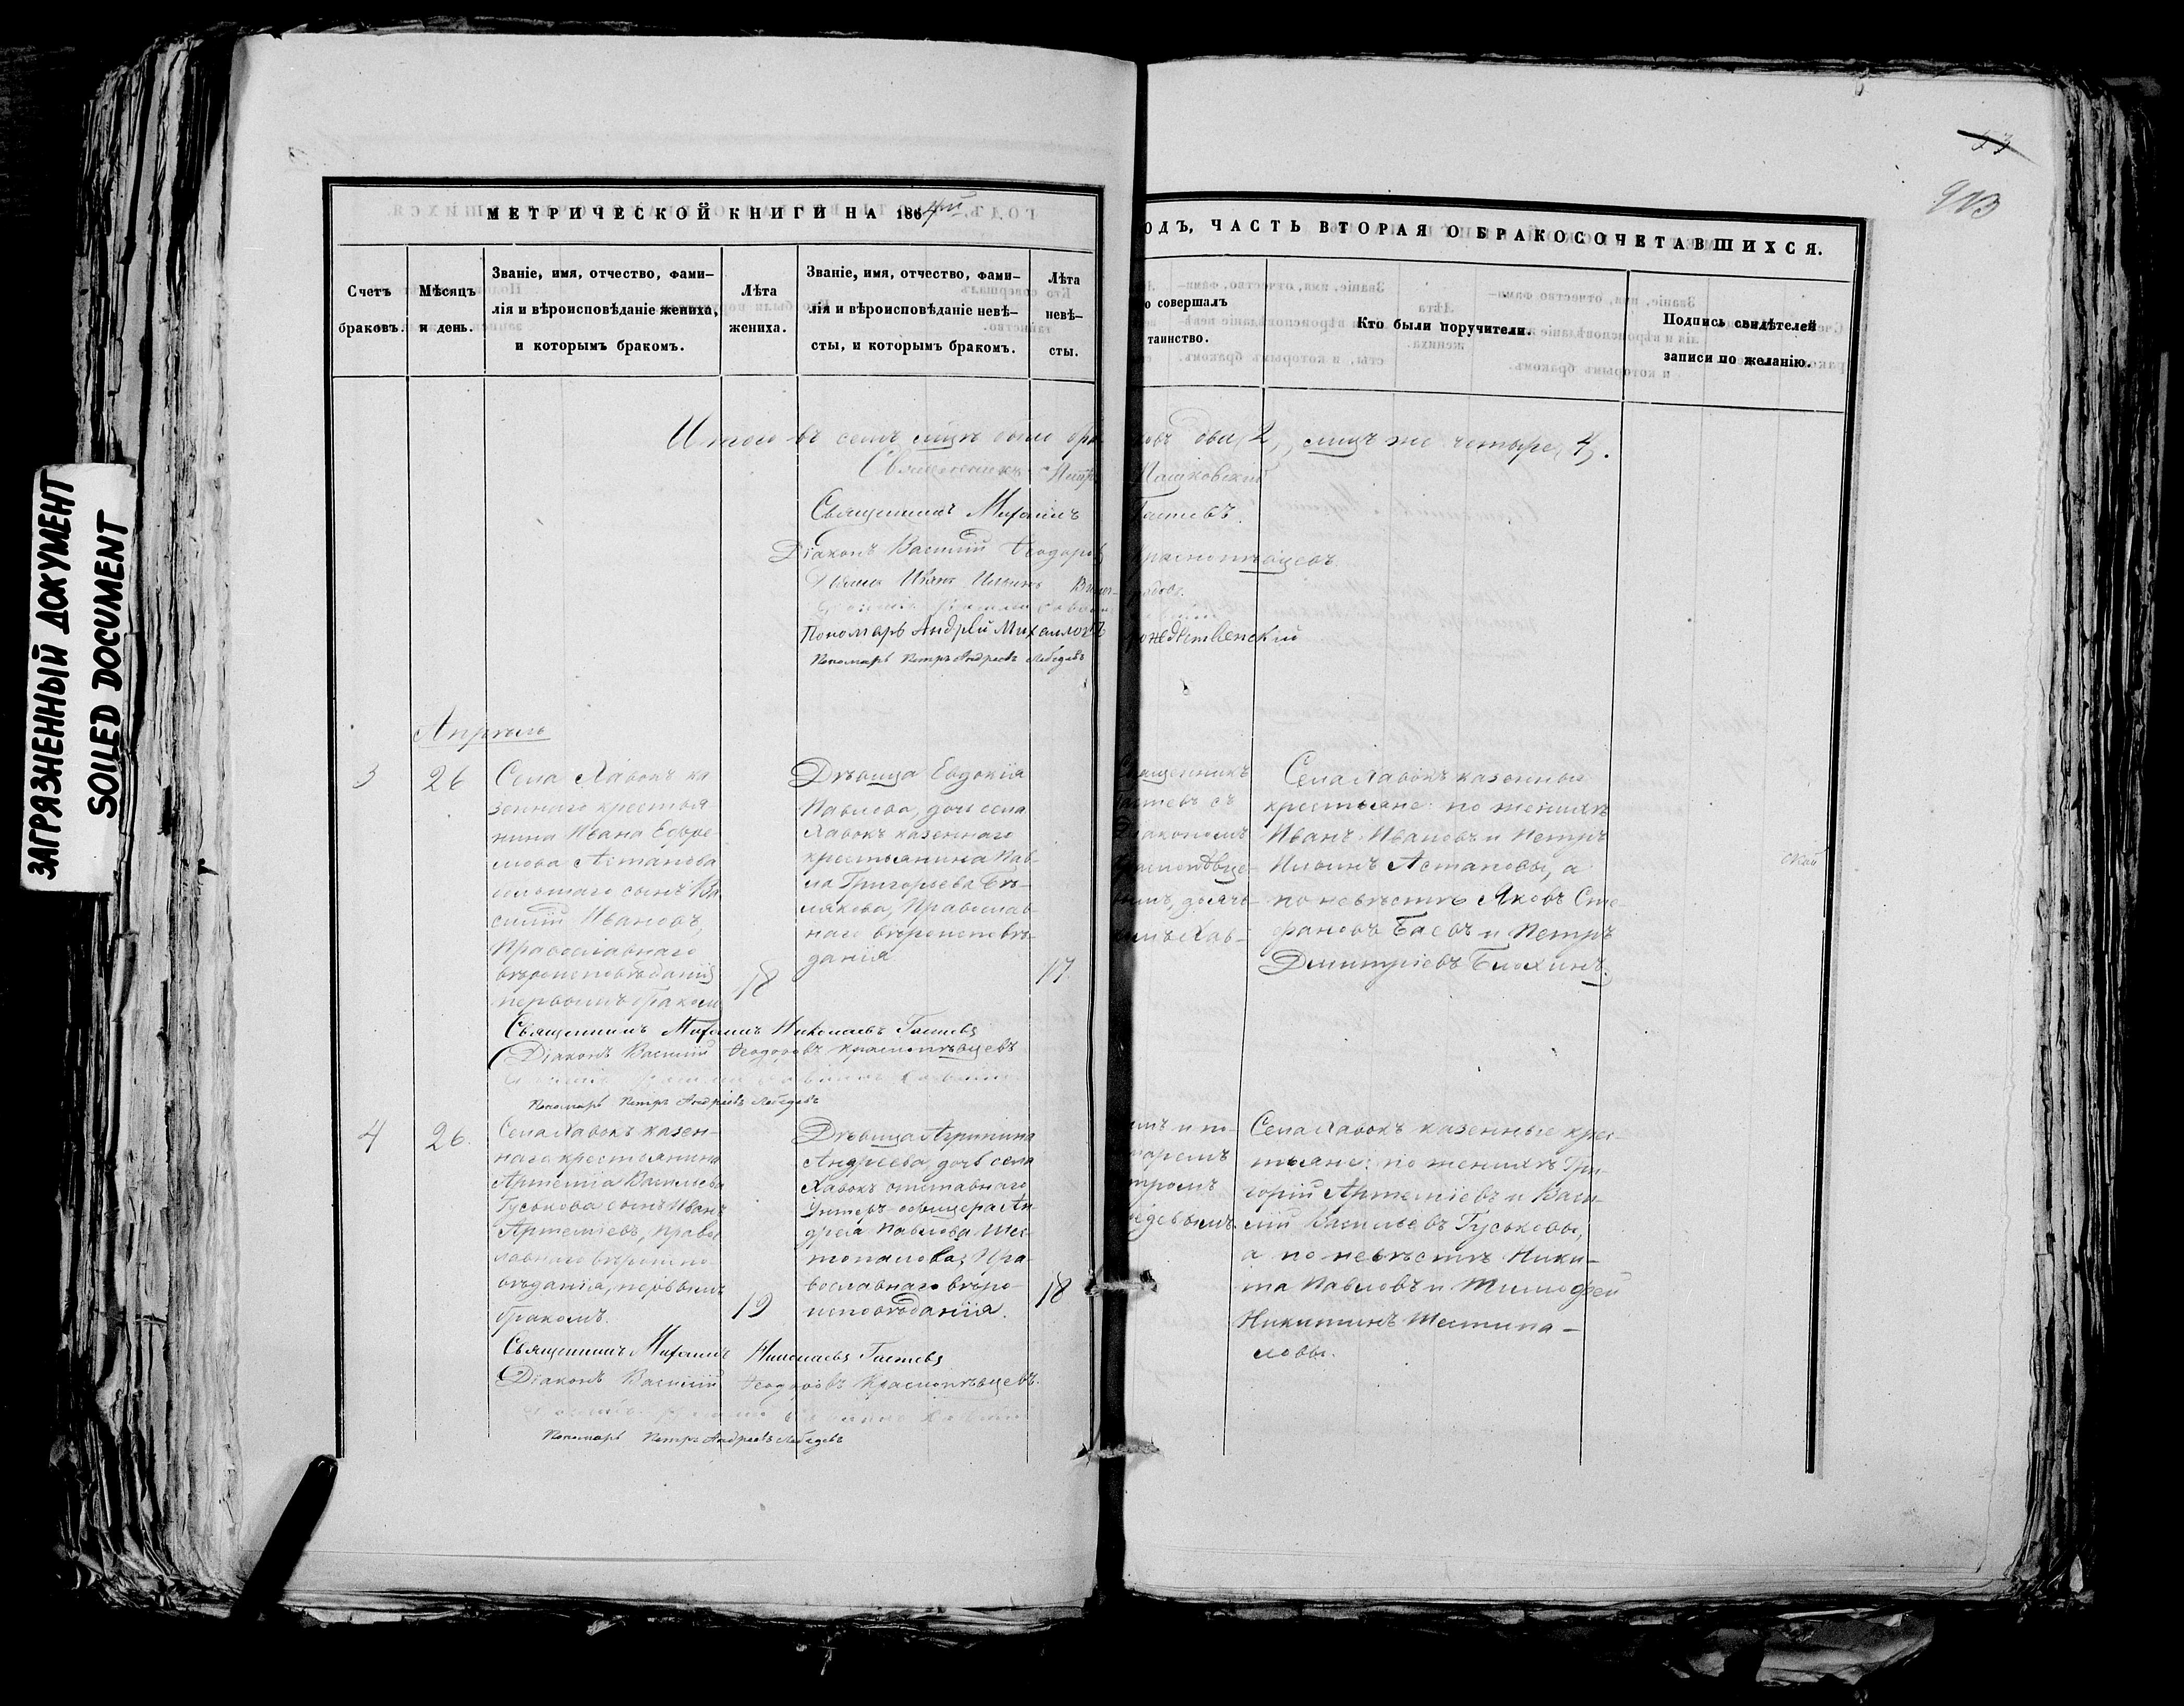 ЗАГРЯЗНЕННЫЙ ДОКУМЕНТ
SOILED DOCUMENT
53
913
МЕТРИЧЕСКОЙ КНИГИ НА 1864й
ОДЪ, ЧАСТЬ ВТОРАЯ О БРАКОСОЧЕТАВШИХСЯ.
Счетъ браковъ.
Мѣсяцъ и день.
Званіе, имя, отчество, фами-
лія и вѣроисповѣданіе жениха,
и которымъ бракомъ.
Лѣта
жениха.
Званіе, имя, отчество, фами-
лія и вѣроисповѣданіе невѣ-
сты, и которымъ бракомъ.
Лѣта
невѣ-
сты.
о совершалъ
таинство.
Кто были поручители.
Подпись свидѣтелей
записи по желанію.
Итого въ семъ было бра ковъ два 2, лицъ же четыре 4.
Священникъ Петръ Пашковскій
Священникъ Михаилъ Гастевъ.
Діаконъ Василій Ѳеодоровъ Краснопѣвцевъ
Иванъ Ильинъ
Пономарь Андрей Михаиловъ Рождественскій
Пономарь Петръ Андреевъ Лебедевъ
Апрѣль
3
26
Села Лавокъ ка
зеннаго крестья
нина Ивана Ефре
мова Астапова
сынъ Ва
силій Ивановъ,
Православнаго
вѣроисповѣданія
первымъ бракомъ
18
Дѣвица Евдокія
Павлова, дочь села
Лавокъ казеннаго
крестьянина Пав-
ла Григорьева Бѣ-
лякова, Православ-
наго вѣроисповѣ-
данія
17.
Священникъ
Гастевъ съ
Діакономъ
Краснопѣвце-
вымъ, дьяч-
Села Лавокъ казенные
крестьяне: по женихѣ
Иванъ Ивановъ и Петръ
Ильинъ Астаповы, а
по невѣстѣ Яковъ Сте
фановъ Баевъ и Петръ
Дмитріевъ Блохинъ.
Священникъ Михаилъ Николаевъ Гастевъ
Діаконъ Василій Ѳеодоровъ Краснопѣвцевъ
Пономарь Петръ Андреевъ Лебедевъ
4
26.
Села Лавокъ казен-
наго крестьянина
Артемія Васильева
Гуськова сынъ Иванъ
Артеміевъ, право
славнаго вѣроиспо-
вѣданія, первымъ
бракомъ.
19
Дѣвица Агрипина
Андреева, дочь села
Лавокъ отставнаго
Унтеръ-офицера Ан-
дрея Павлова Шес-
топалова, Пра-
вославнаго вѣро-
исповѣданія.
18
имъ и по-
номаремъ
Петромъ
Лебедевымъ.
Села Лавокъ казенные крес-
тьяне: по женихѣ Гри-
горій Артеміевъ и Васи-
лій Васильевъ Гуськовы,
а по невѣстѣ Ники-
та Павловъ и Тимофей
Никитинъ Шестопа-
ловы.
Священникъ Михаилъ Николаевъ Гастевъ
Діаконъ Василій Ѳеодоровъ Краснопѣвцевъ.
Пономарь Петръ Андреевъ Лебедевъ